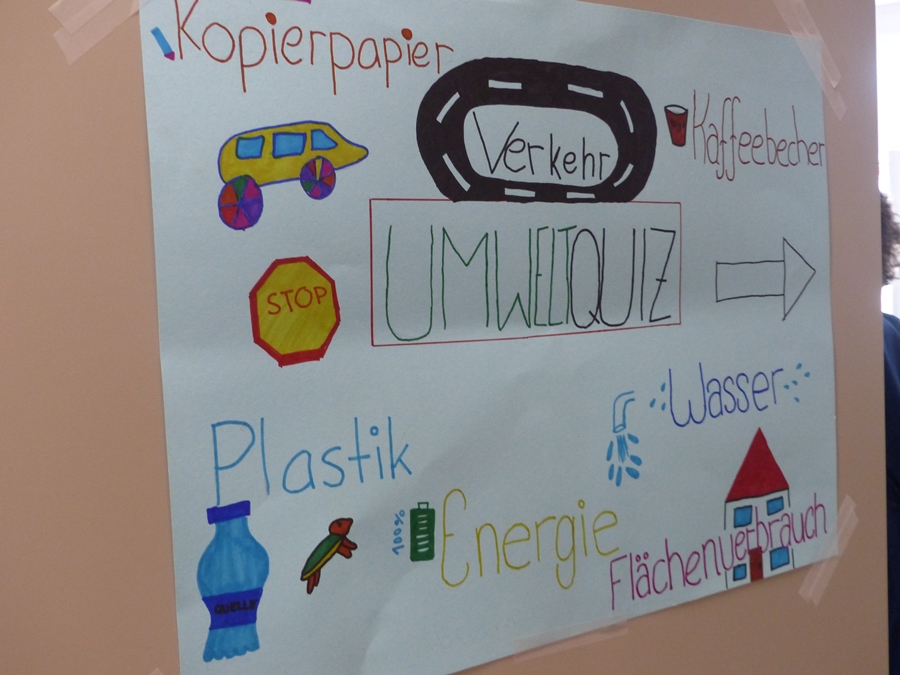 Kopierpapier
Verkehr
Kaffeebecher
UMWELTQUIZ
STOP
Wasser
Plastik
100%
Energie
Flächenverbrauch
QUELLE